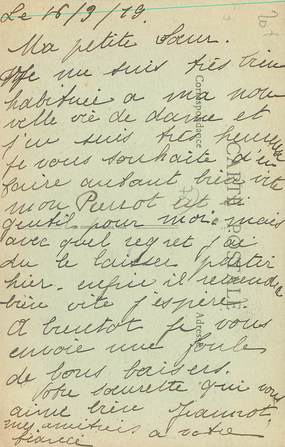 Le 16/9/19.
Ma petite Sœur.
Je me suis très bien
habituée a ma nou
velle vie de dame et
j'en suis très heureuse
je vous souhaite d'en
faire autant bien vite
mon Pierrot est si
gentil pour moi mais
avec quel regret j'ai
du le laisser partir
hier. enfin il reviendra
bien vite j'espère.
A bientot je vous
envoie une foule
de bons baisers.
Votre sœurette qui vous
aime bien Jeannot
mes amitiés a votre
fiancé
CARTE POSTALE
Correspondance
Adresse